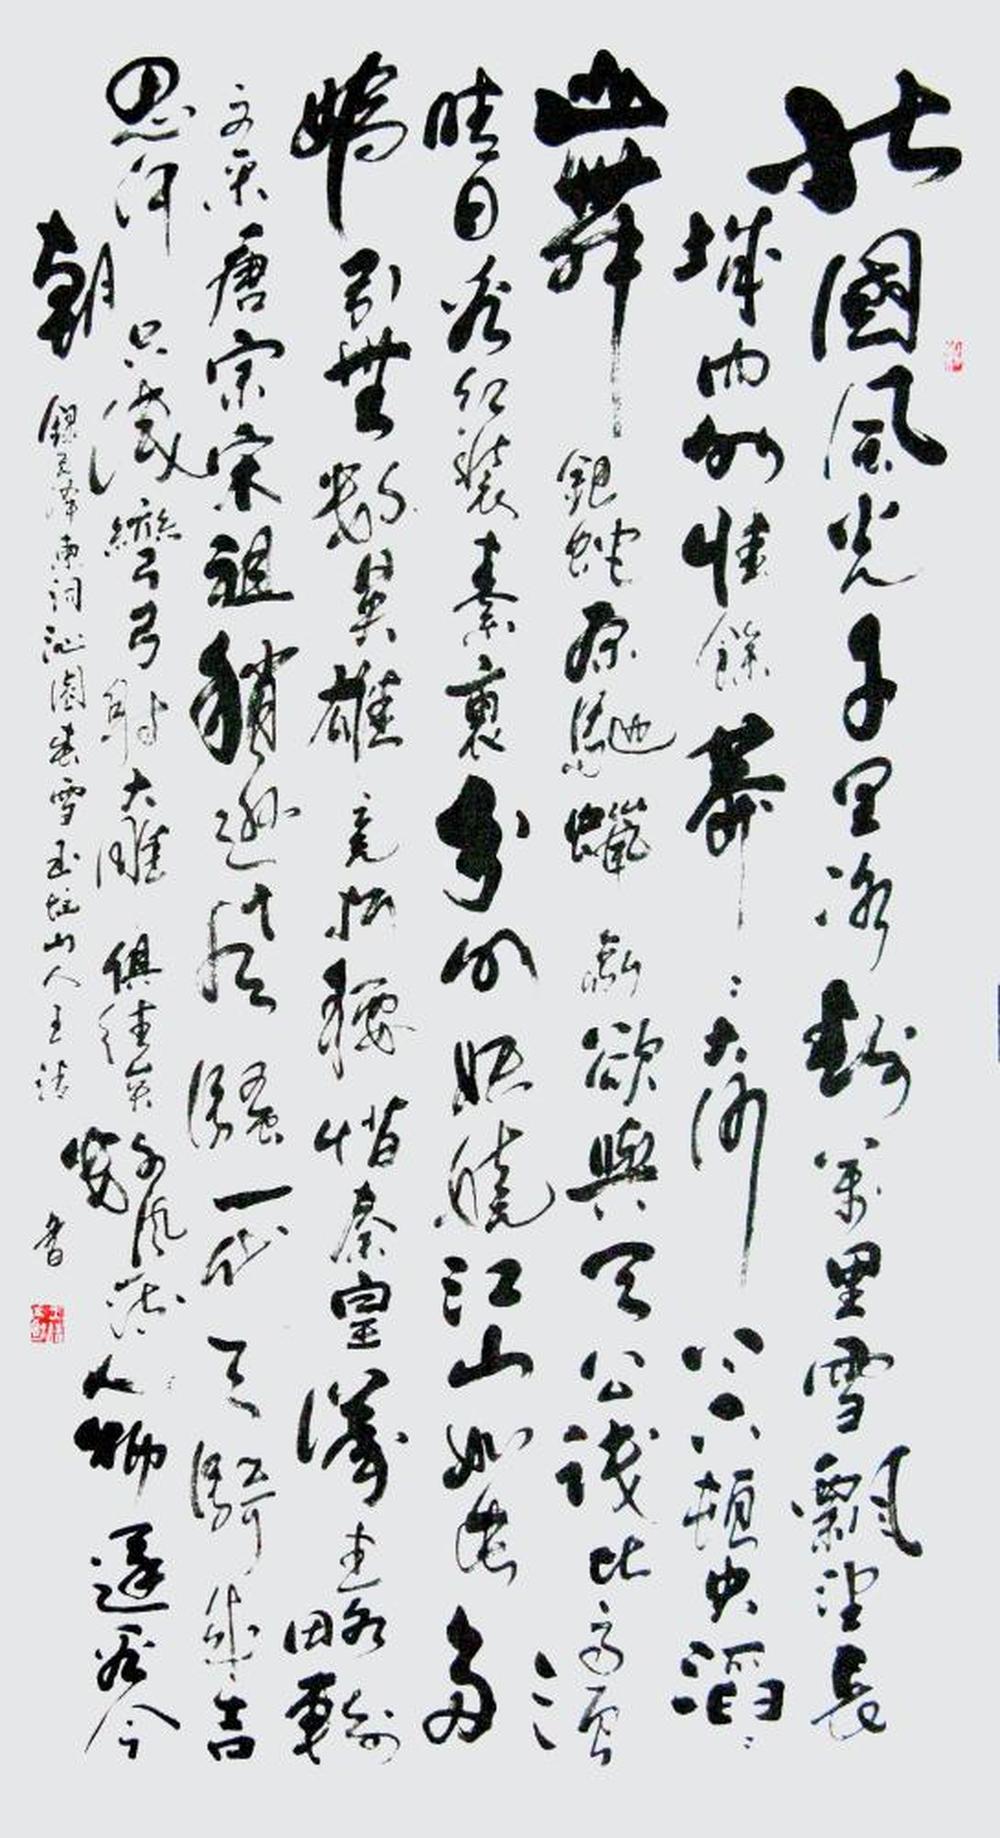 北國風光千里冰封萬里雪飄望長
城內外惟餘莽〻大河上下頓失滔〻
山舞銀蛇原馳蠟象欲與天公試比高須
晴日看紅裝素裹分外妖嬈江山如此多
嬌引無數英雄競折腰惜秦皇漢武略輸
文采唐宗宋祖稍遜風騷一代天驕成吉
思汗只識彎弓射大雕俱往矣數風流人物還看今
朝
錄毛澤東詞沁園春雪玉山人王書